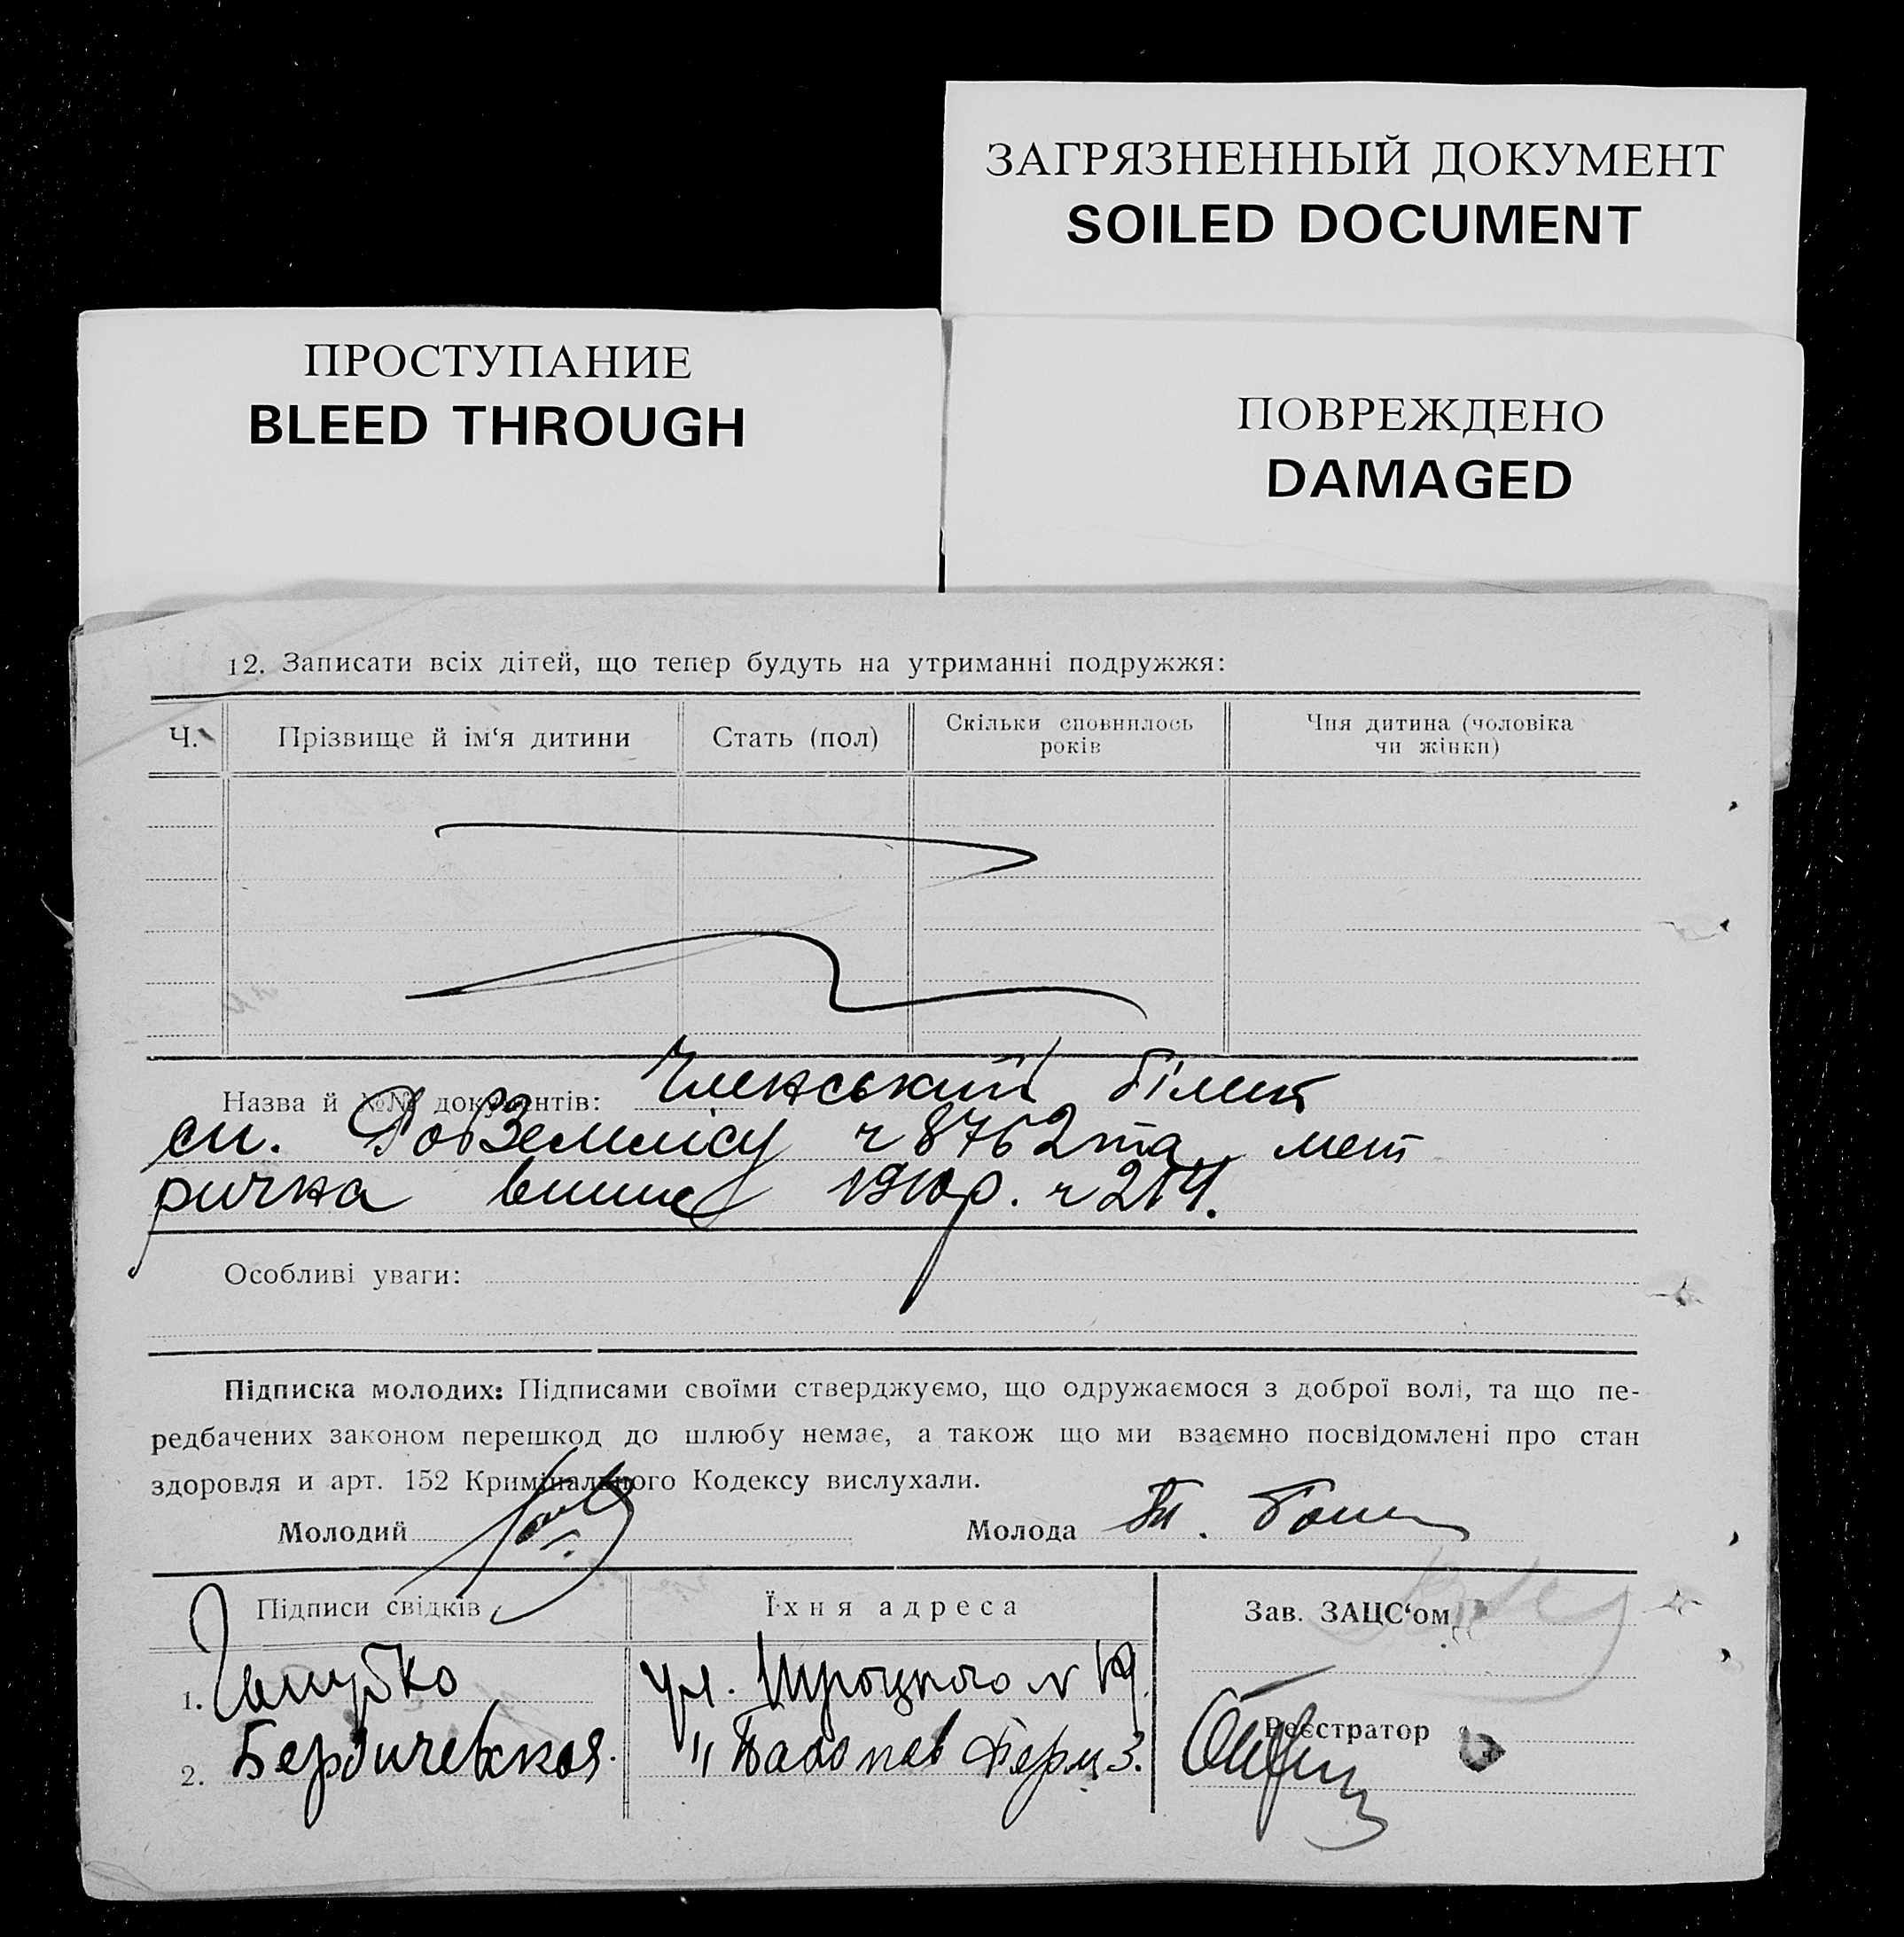 ЗАГРЯЗНЕННЫЙ ДОКУМЕНТ
SOILED DOCUMENT
ПРОСТУПАНИЕ
BLEED THROUGH
ПОВРЕЖДЕНО
DAMAGED
12. Записати всіх дітей, що тепер будуть на утриманні подружжя:
Ч. Прізвище й ім‘я дитини Стать (пол) Скільки сповнилось років Чия дитина (чоловіка чи жінки)
Назва й №№ документів: Членський білет
сп. РобЗемлісу ч 8762 та мет
ричка виписъ 1910р. ч 214.
Особливі уваги:
Підписка молодих: Підписами своїми стверджуємо, що одружаємося з доброї волі, та що пе-
редбачених законом перешкод до шлюбу немає, а також що ми взаємно посвідомлені про стан
здоровля и арт. 152 Кримінального Кодексу вислухали.
Молодий Молода
Підписи свідків Їхня адреса Зав. ЗАЦС‘ом
1. ул. Троцкого N 19
Реєстратор
2. Бердичевская.